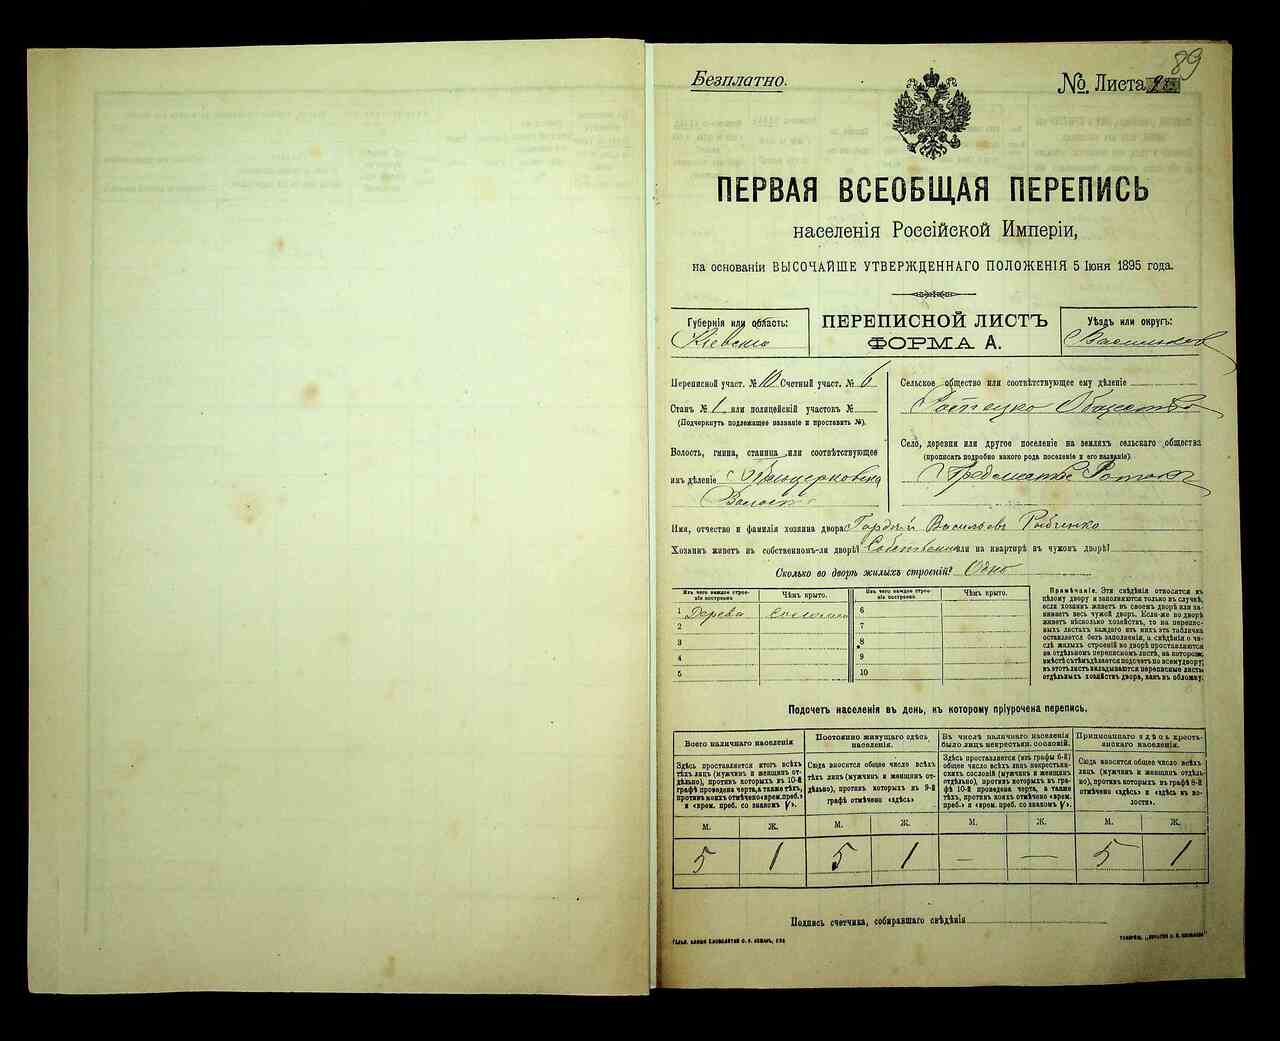 89
Безплатно.
№. Листа
ПЕРВАЯ ВСЕОБЩАЯ ПЕРЕПИСЬ
населенія Россійской Имперіи,
на основаніи ВЫСОЧАЙШЕ УТВЕРЖДЕННАГО ПОЛОЖЕНІЯ 5 Іюня 1895 года.
Губернія или область:
Кіевская
ПЕРЕПИСНОЙ ЛИСТЪ
ФОРМА А.
Уѣздъ или округъ:
Васильков
Переписной участ. № 10 Счетный участ. № 6
Станъ № 1 или полицейскій участокъ №
(Подчеркнуть подлежащее названіе и проставить №).
Волость, гмина, станица или соотвѣтствующее
имъ дѣленіе Бѣлоцерковска
Волость
Сельское общество или соотвѣтствующее ему дѣленіе
Общество
Село, деревня или другое поселеніе на земляхъ сельскаго общества
(прописать подробно какого рода поселеніе и его названіе).
Предместье Роток
Имя, отчество и фамилія хозяина двора: Гордѣй Васильевъ Рыбченко
Хозяинъ живетъ въ собственномъ-ли дворѣ? Собственном или на квартирѣ въ чужомъ дворѣ?
Сколько во дворѣ жилыхъ строеній? Одно
Изъ чего каждое строеніе построено.
Чѣмъ крыто.
Изъ чего каждое строеніе построено.
Чѣмъ крыто.
1 Дерева Соломой 6
2 7
3 8
4 9
5 10
Примѣчаніе. Эти свѣдѣнія относятся къ
цѣлому двору и заполняются только въ случаѣ,
если хозяинъ живетъ въ своемъ дворѣ или занимаетъ
весь чужой дворъ. Если-же во дворѣ
живетъ нѣсколько хозяйствъ, то на переписныхъ
листахъ каждаго изъ нихъ эта табличка
оставляется безъ заполненія, а свѣдѣнія о числѣ
жилыхъ строеній во дворѣ проставляются
на отдѣльномъ переписномъ листѣ, на которомъ
вмѣстѣ съ тѣмъ дѣлается подсчетъ по всему двору;
въ этотъ листъ вкладываются переписные листы
отдѣльныхъ хозяйствъ двора, какъ въ обложку.
Подсчетъ населенія въ день, къ которому пріурочена перепись.
Всего наличнаго населенія
Постоянно живущаго здѣсь населенія.
Въ числѣ наличнаго населенія было лицъ некрестьян. сословій.
Приписаннаго здѣсь крестьянскаго населенія.
Здѣсь проставляется итогъ всѣхъ
тѣхъ лицъ (мужчинъ и женщинъ отдѣльно),
противъ которыхъ въ 10-й
графѣ проведена черта, а также тѣхъ,
противъ коихъ отмѣчено «врем. преб.»
и «врем. преб. со знакомъ V».
Сюда вносится общее число всѣхъ
тѣхъ лицъ (мужчинъ и женщинъ отдѣльно),
противъ которыхъ въ 9-й
графѣ отмѣчено «здѣсь»
Здѣсь проставляется (изъ графы 6-й)
общее число всѣхъ лицъ некрестьянскихъ
сословій (мужчинъ и женщинъ
отдѣльно), противъ которыхъ въ графѣ
10-й отмѣчена черта, а также
тѣхъ, противъ коихъ отмѣчено «врем.
преб.» и «врем. преб. со знакомъ V».
Сюда вносится общее число всѣхъ
лицъ (мужчинъ и женщинъ отдѣльно),
противъ которыхъ въ графѣ 8-й
отмѣчено «здѣсь» и «здѣсь въ волости».
М. Ж. М. Ж. М. Ж. М. Ж.
5 1 5 1 — — 5 1
Подпись счетчика, собиравшаго свѣдѣнія